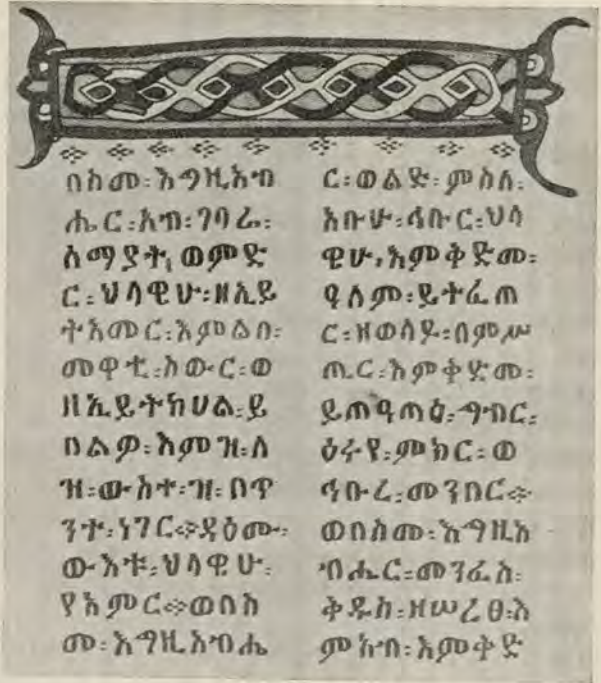 በስመ፡እግዚአብ
ሔር፡አብ፡ገባሬ፡
ሰማያት፡ወምድ
ር፡ህላዌሁ፡ዘኢይ
ትአመር፡እምልበ፡
መዋቲ፡ስውር፡ወ
ዘኢይትከሀል፡ይ
በልዎ፡እምዝ፡ለ
ዝ፡ውስተ፡ዝ፡በጥ
ንተ፡ነገር፨ዳዕሙ፡
ውእቱ፡ህላዌሁ፡
የአምር፨ወበስ
መ፡እግዚአብሔ
ር፡ወልድ፡ምስለ፡
አቡሁ፡ኅቡር፡ህላ
ዌሁ፡እምቅድመ፡
ዓለም፡ይተፈጠ
ር፡ዘወሰዶ፡በምሥ
ጢር፡እምቅድመ፡
ይጠዓጣዕ፡ግብር፡
ዕሩየ፡ምክር፡ወ
ኅቡረ፡መንበር፨
ወበስመ፡እግዚአ
ብሔር፡መንፈስ፡
ቅዱስ፡ዘሠረፀ፡እ
ምአብ፡እምቅድ